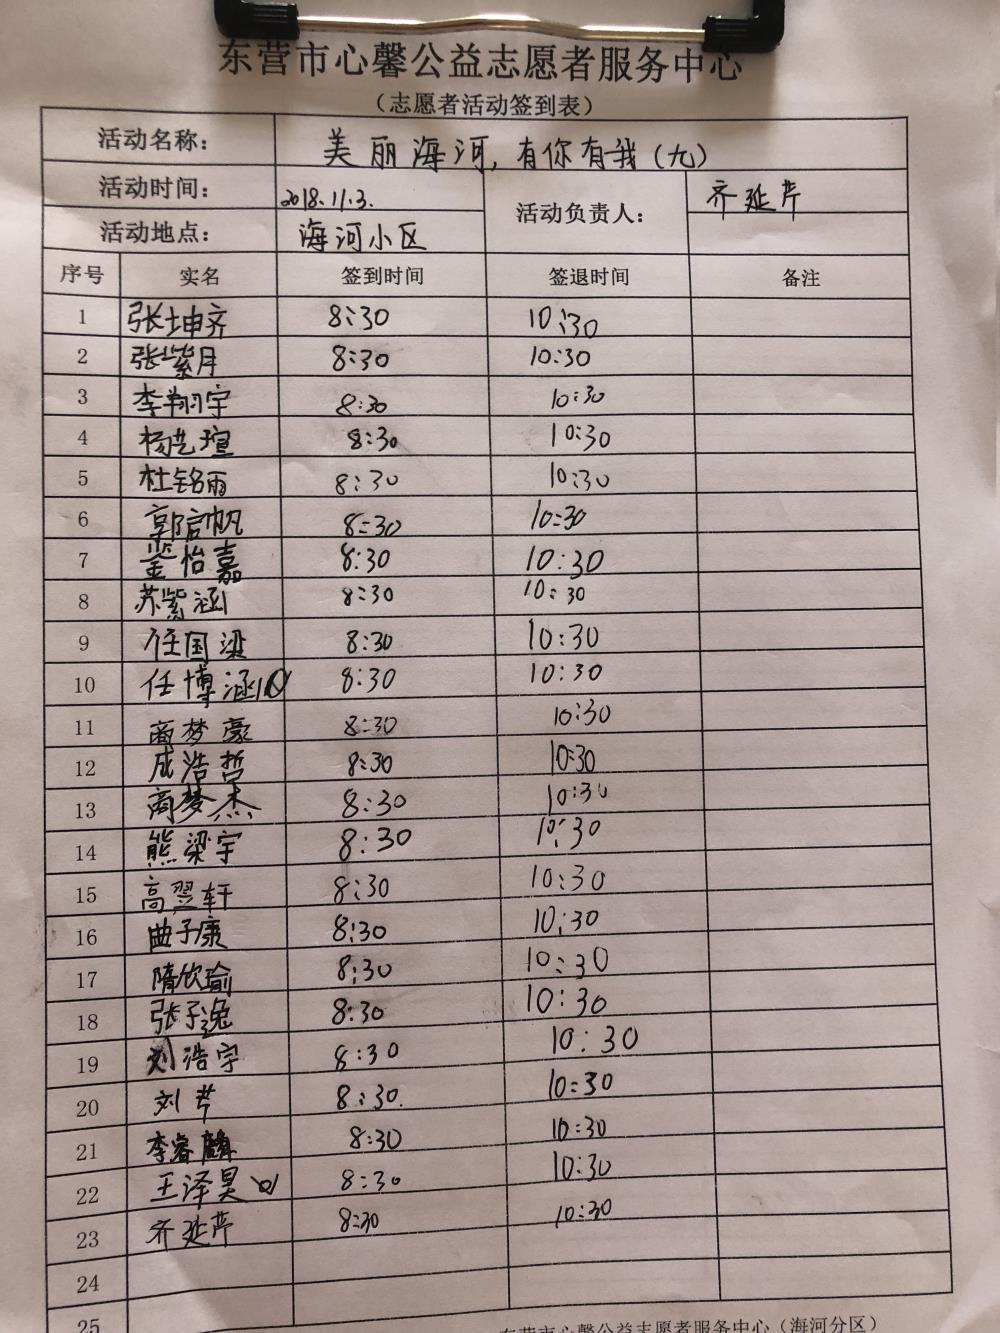 东营市心馨公益志愿者服务中心
（志愿者活动签到表）
活动名称： 美丽海河，有你有我（九）
活动时间： 2018.11.3. 活动负责人： 齐延芹
活动地点： 海河小区
序号 实名 签到时间 签退时间 备注
1 张坤齐 8:30 10:30
2 张紫月 8:30 10:30
3 李翔宇 8:30 10:30
4 杨艺瑄 8:30 10:30
5 杜铭雨 8:30 10:30
6 郭启帆 8:30 10:30
7 怡嘉 8:30 10:30
8 苏紫涵 8:30 10:30
9 任国梁 8:30 10:30
10 任博涵 8:30 10:30
11 商梦豪 8:30 10:30
12 成浩哲 8:30 10:30
13 商梦杰 8:30 10:30
14 熊梁宇 8:30 10:30
15 高翌轩 8:30 10:30
16 曲子康 8:30 10:30
17 隋欣瑜 8:30 10:30
18 张子逸 8:30 10:30
19 刘浩宇 8:30 10:30
20 刘芹 8:30. 10:30
21 李睿麟 8:30 10:30
22 王泽昊 8:30 10:30
23 齐延芹 8:30 10:30
24
25
东营市心馨公益志愿者服务中心（海河分区）